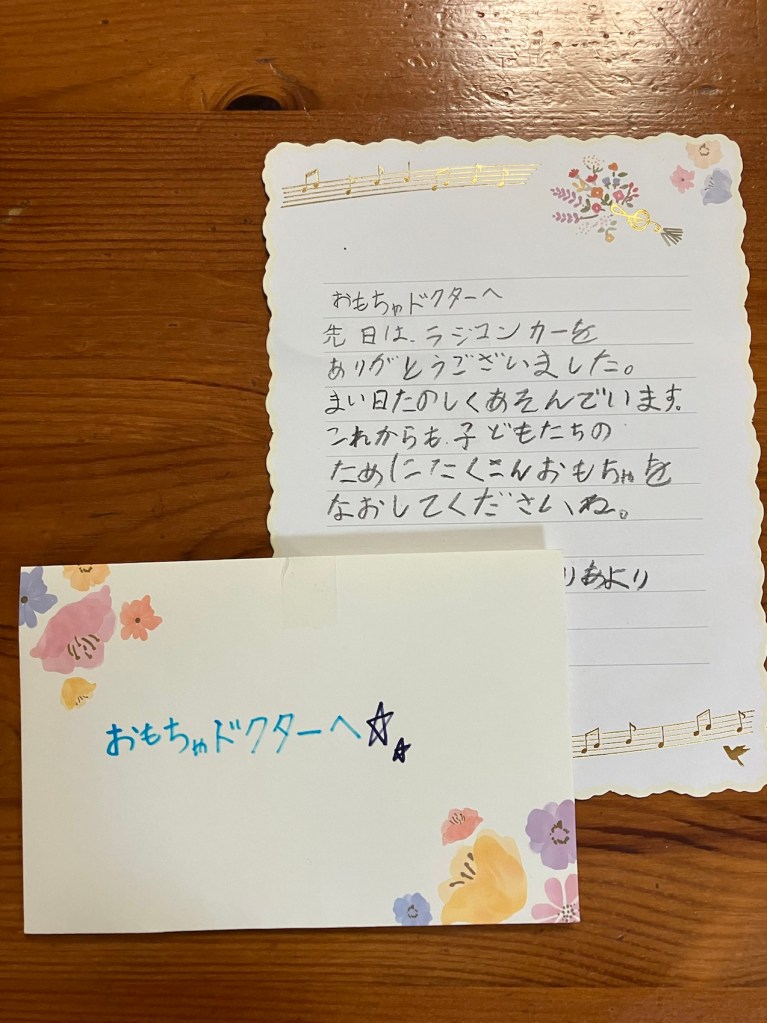 おもちゃドクターへ
先日は、ラジコンカーを
ありがとうございました。
まい日たのしくあそんでいます。
これからも、子どもたちの
ためにたくさんおもちゃを
なおしてくださいね。
りあより
おもちゃドクターへ☆☆